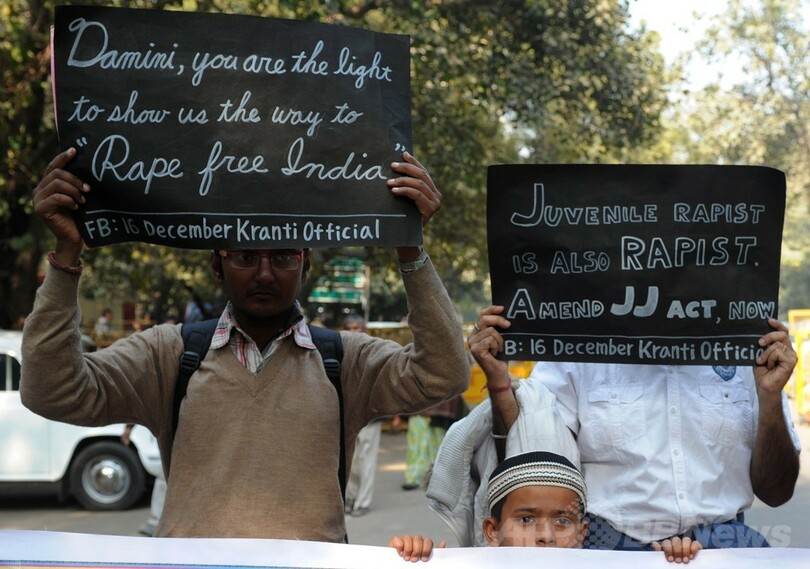 Damini, you are the light
to show us the way to
"Rape free India"
FB: 16 December Kranti Official
JUVENILE RAPIST
IS ALSO RAPIST.
AMEND JJ ACT, NOW
B: 16 December Kranti Offici
AFPBB News